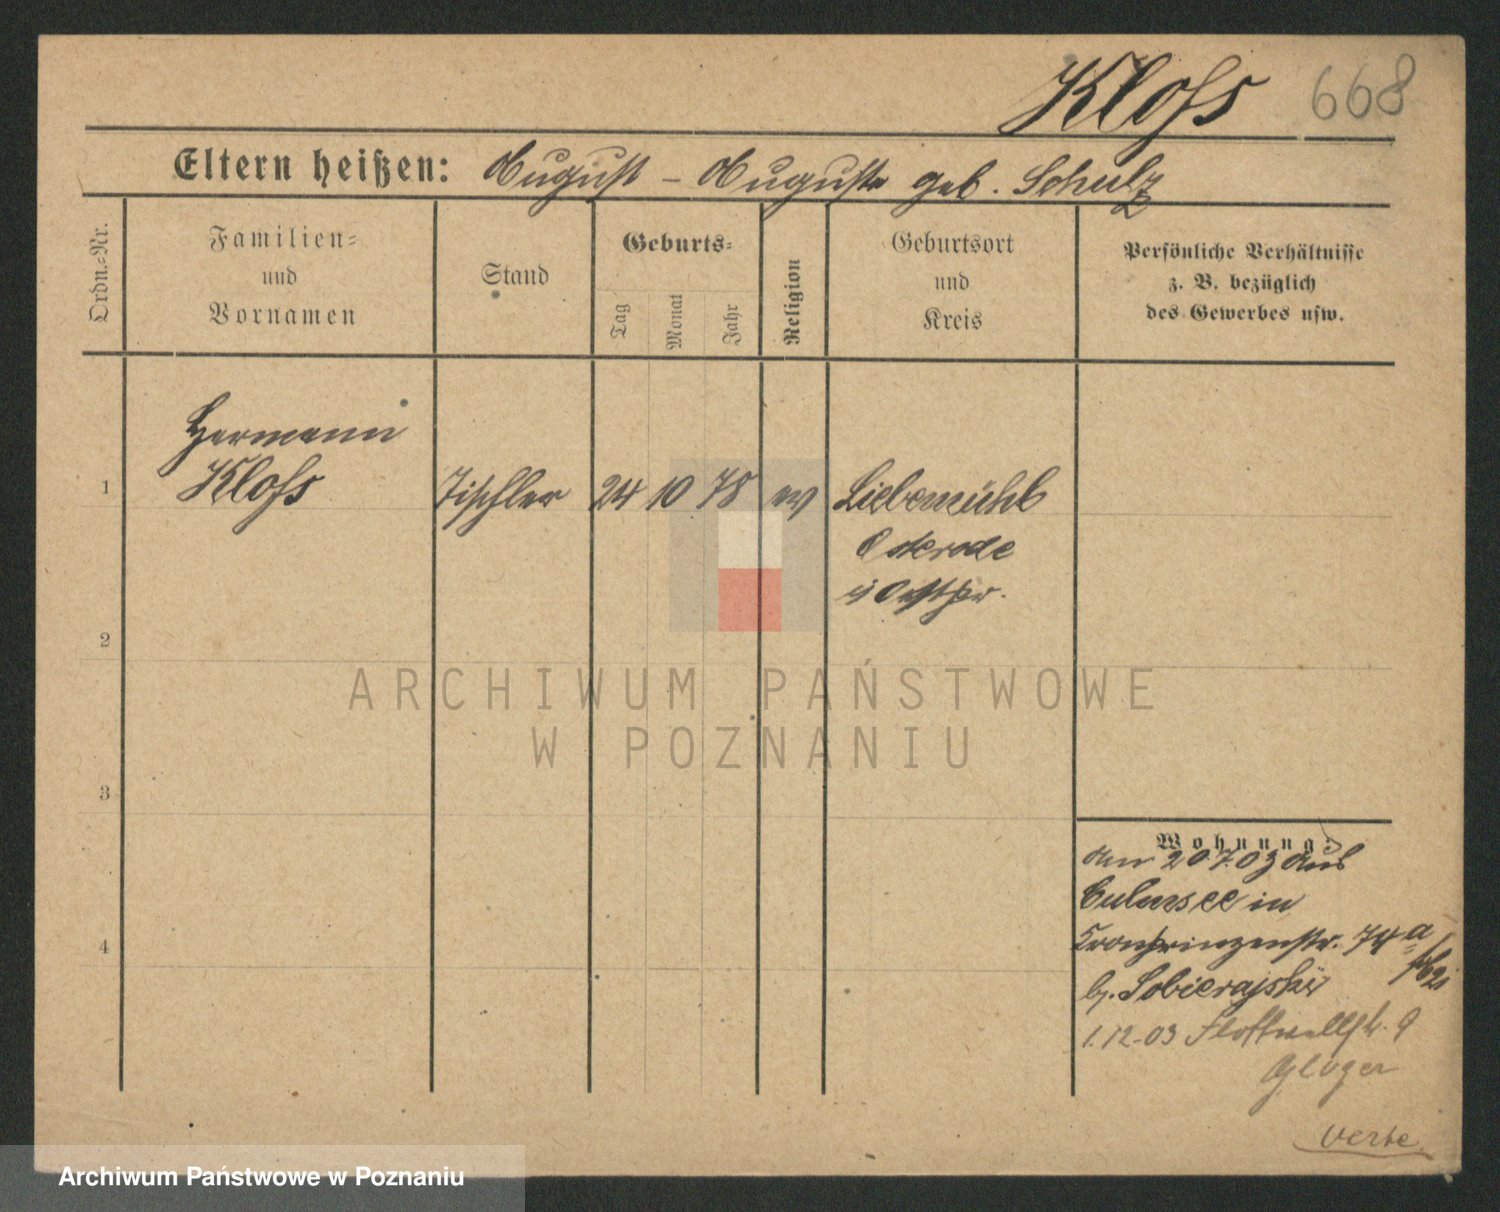 Kloß 668
Eltern heißen: August – Auguste geb. Schulz
Ordn.-Nr.
Familien-
und
Vornamen
Stand
Geburts-
Tag
Monat
Jahr
Religion
Geburtsort
und
Kreis
Persönliche Verhältnisse
z. B. bezüglich
des Gewerbes usw.
Hermann
1 Kloß Tischler 24 10 78 ev Liebemühl
Osterode
i/Ostpr.
2
ARCHIWUM PAŃSTWOWE
W POZNANIU
3
Wohnung:
am 20 7. 03 aus
Culmsee in
4 Kronprinzenstr. 74 a
b. Sobierajski
1.12-03 Flottwellstr. 9
Gloger
Verte
Archiwum Państwowe w Poznaniu